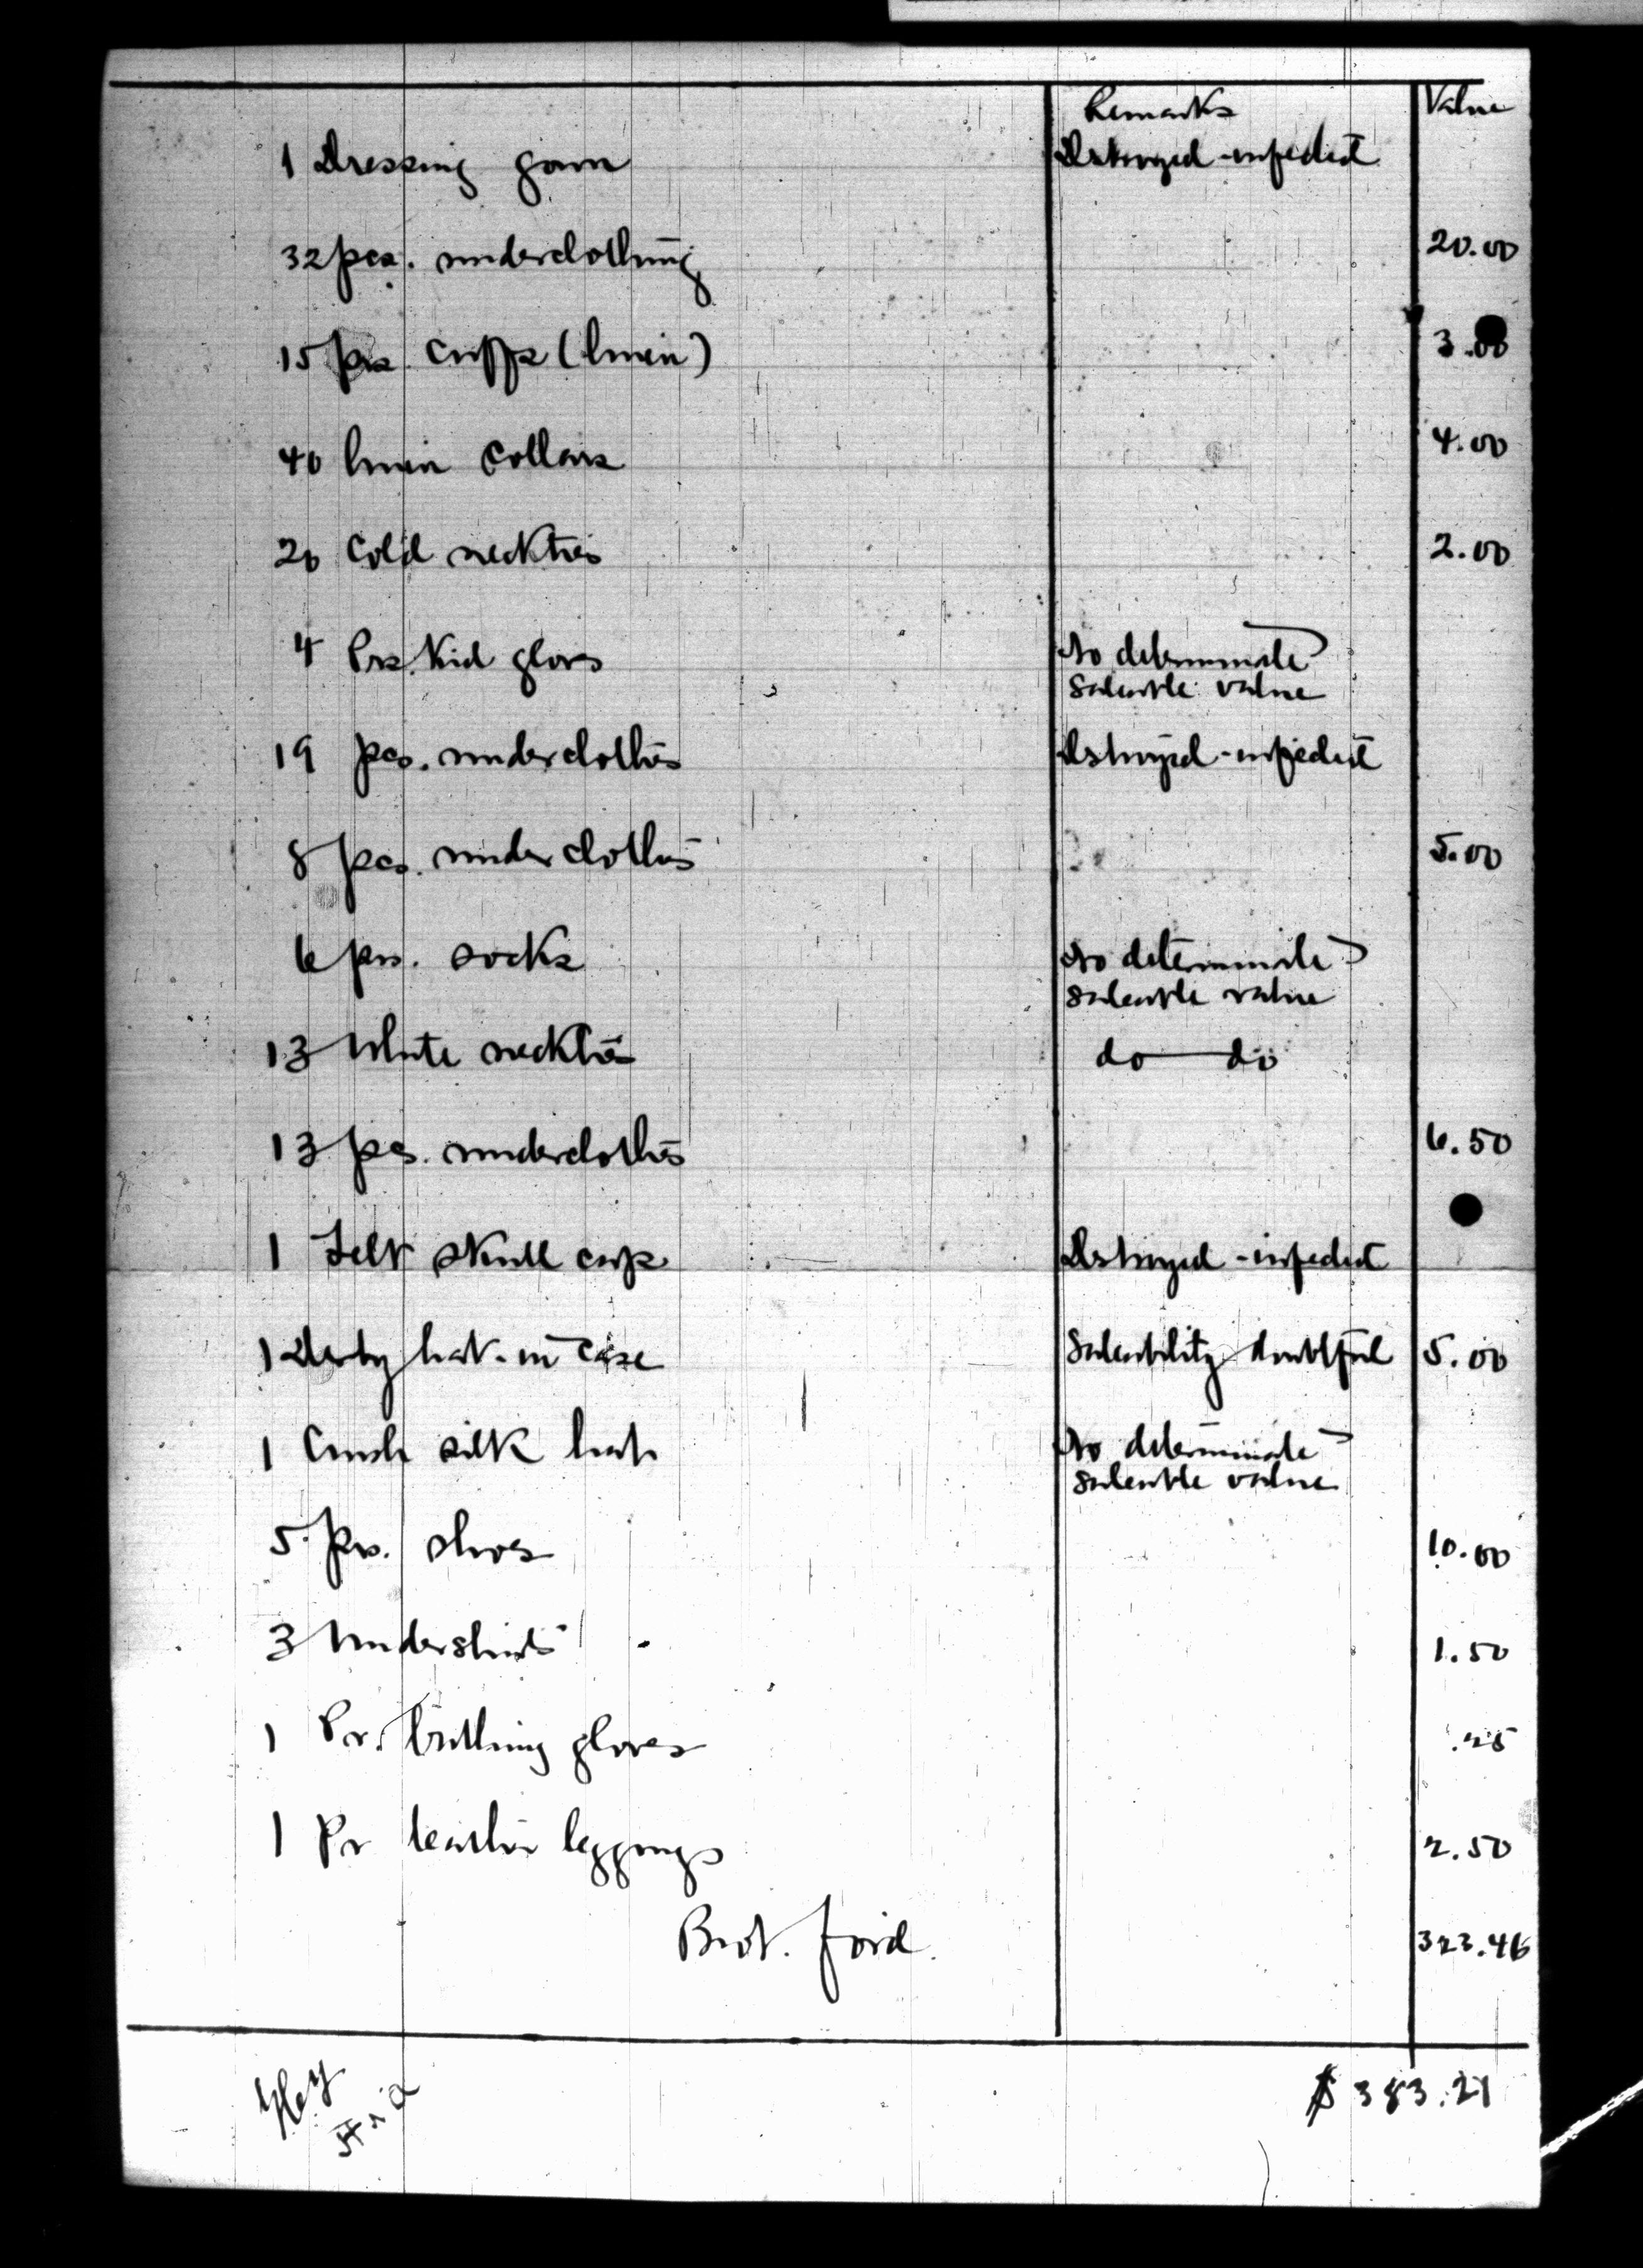 Remarks Value
1 Dressing gown Destroyed - infected
32 pcs. underclothing 20.00
15 prs. cuffs (linen) 3.00
40 linen collars 4.00
20 Col'd neckties 2.00
4 Prs. Kid gloves No determinate
saleable value
19 pcs. underclothes Destroyed - infected
8 pcs. underclothes 5.00
6 prs. socks No determinate
saleable value
13 White neckties do — do
13 pcs. underclothes 6.50
1 Felt skull cap Destroyed - infected
1 Derby hat - in case Saleability doubtful 5.00
1 Crush silk hat No determinate
saleable value
5 prs. shoes 10.00
3 Undershirts 1.50
1 Pr. bathing gloves .25
1 Pr leather leggings 2.50
Brot. ford. 323.46
$ 383.21